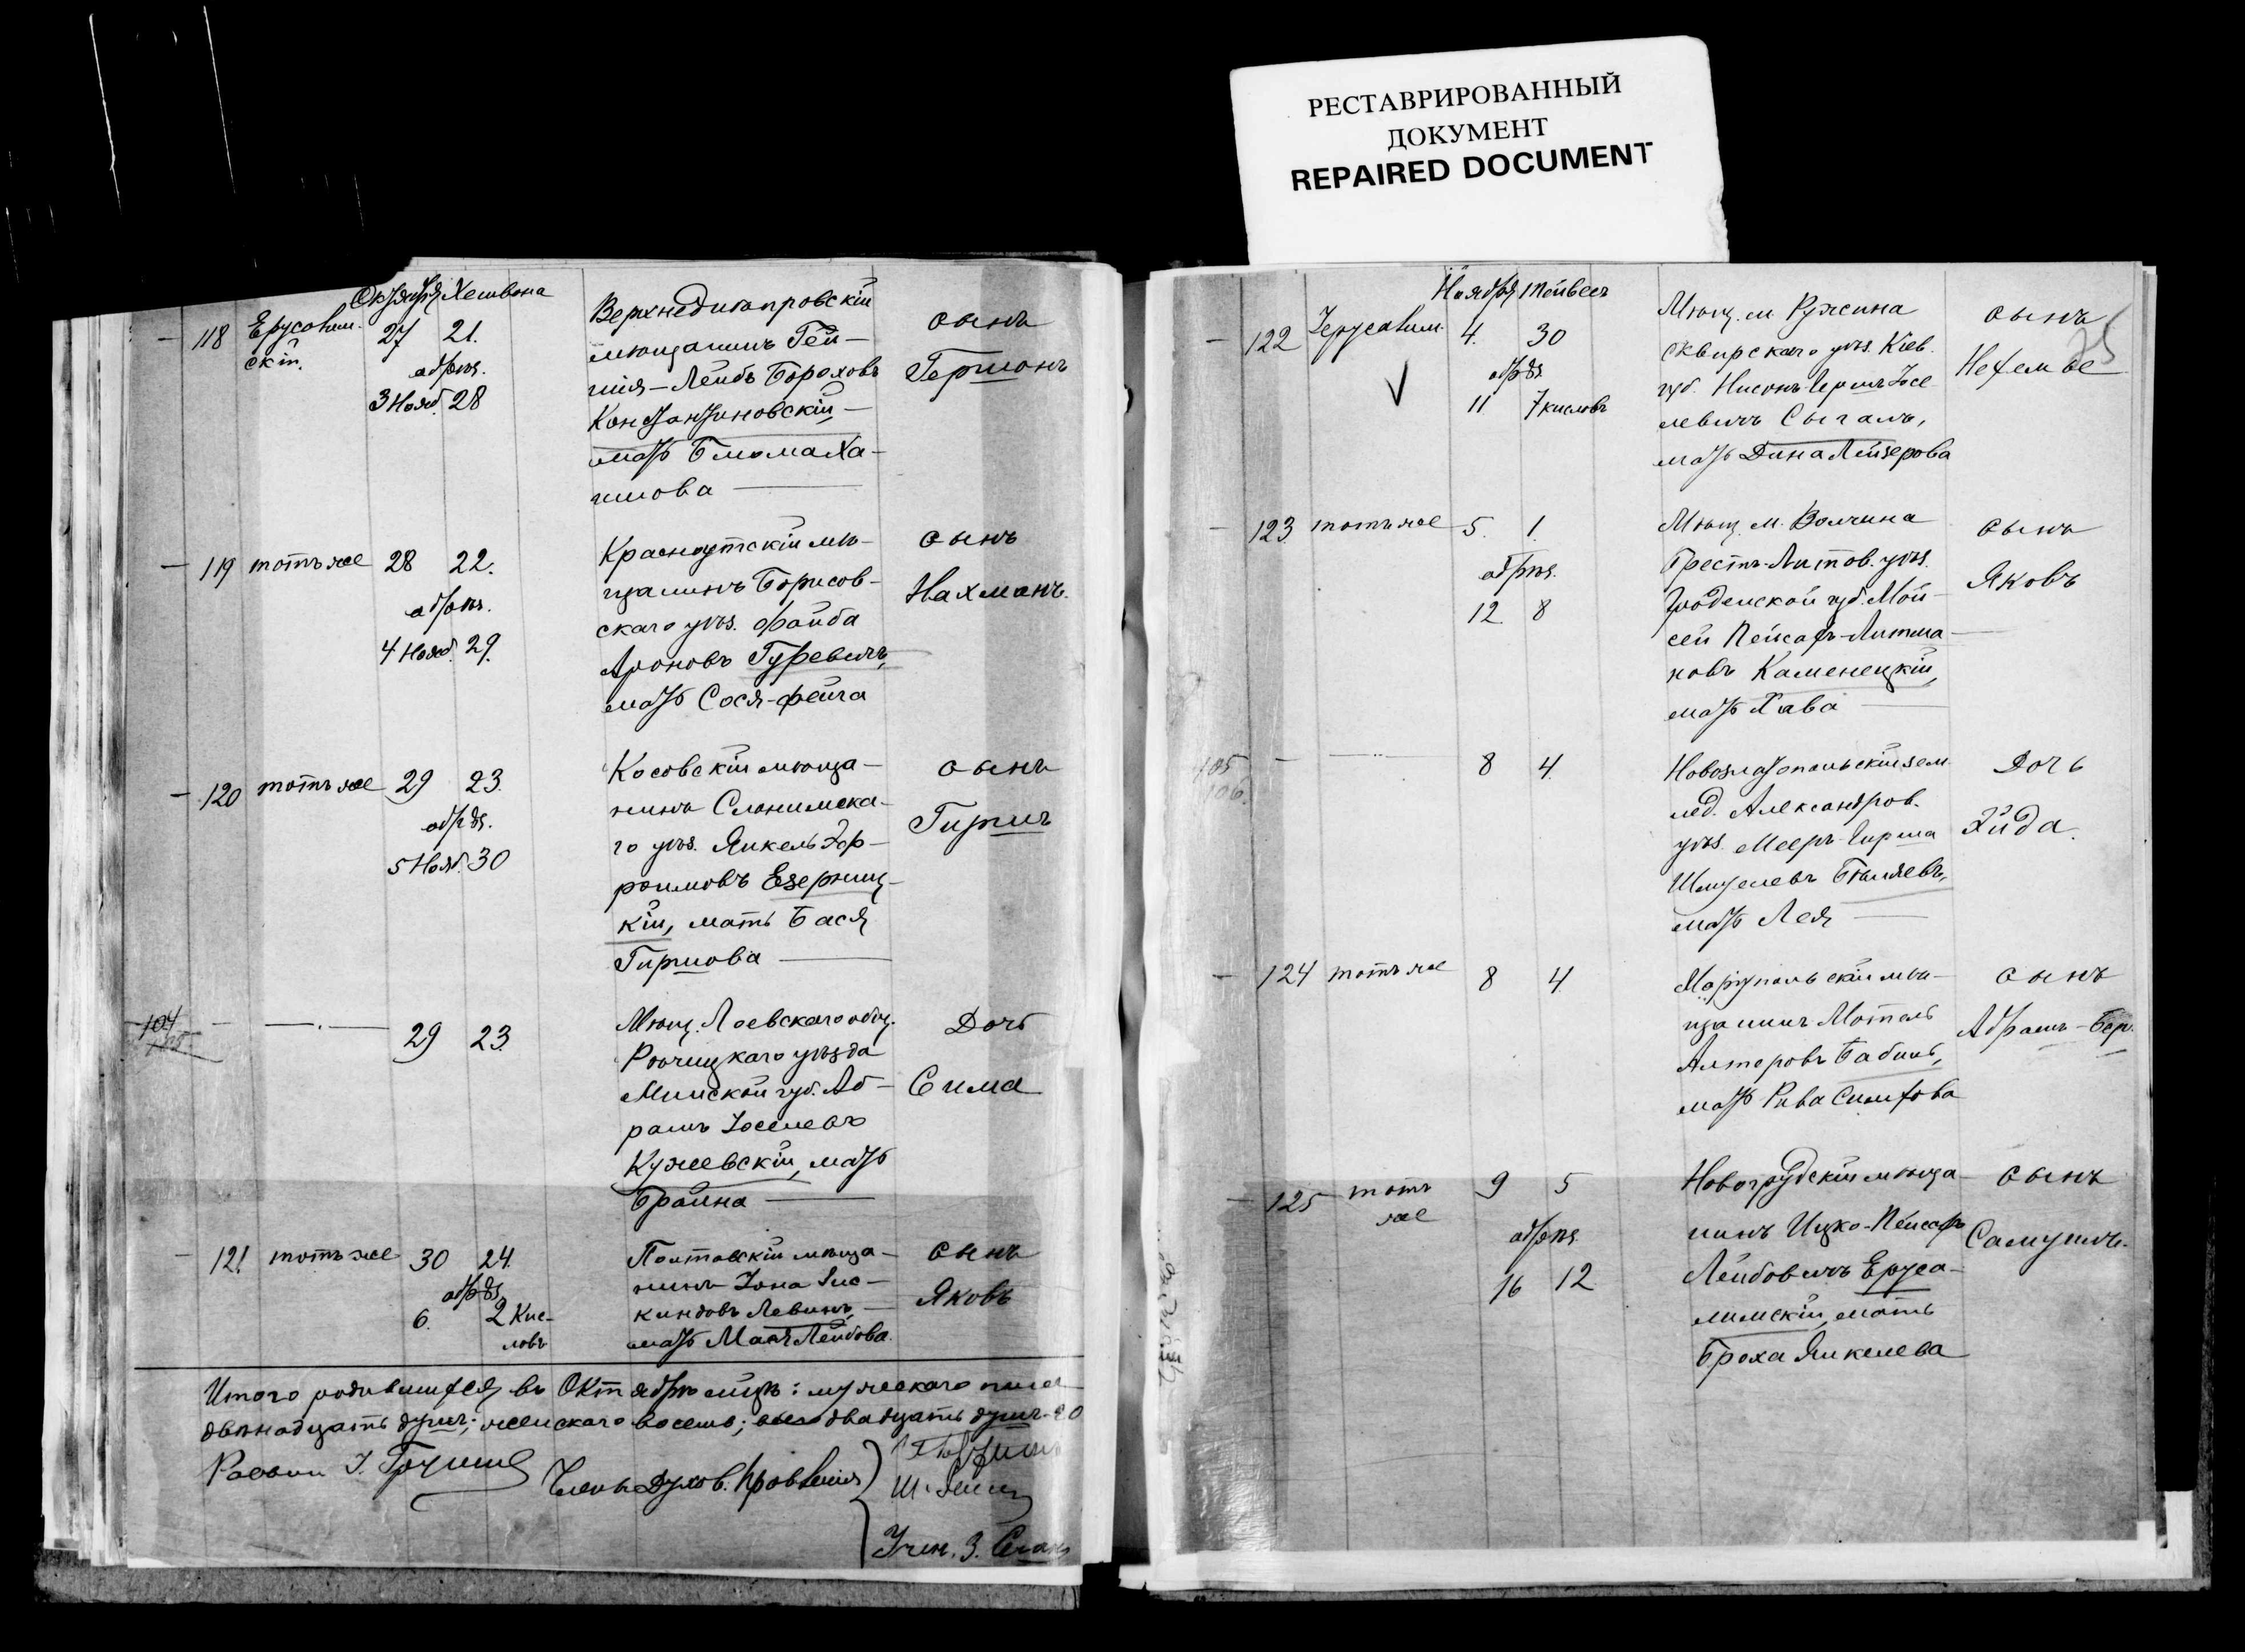 РЕСТАВРИРОВАННЫЙ
ДОКУМЕНТ
REPAIRED DOCUMENT
Октября Хешвона
118 Ерусалим
скій.
27 21.
обрѣз.
3 Нояб. 28
Верхнеднѣпровскій
мѣщанинъ Гей—
шія—Лейбъ Бороховъ
Константиновскій,—
мать Блюма Ха—
имова —
сынъ
Германъ
— 119 тотъ же 28 22.
обрѣз.
4 Нояб. 29.
Краснокутскій мѣ—
щанинъ Борисов—
скаго уѣз. Файба
Ароновъ Гуревичъ,
мать Сося-Фейга
сынъ
Нахманъ.
— 120 тотъ же 29 23.
обрѣз.
5 Нояб. 30
Косовскій мѣща—
нинъ Слонимска—
го уѣз. Янкель Эф—
роимовъ Езерниц—
кій, мать Бася
Гиршова —
сынъ
Гиршъ
104
29 23.
Мѣщ. Лоевскаго общ.
Рѣчицкаго уѣзда
Минской губ. Аб—
рамъ Іоселевъ
Кужеевскій, мать
Браина —
Дочь
Сима
— 121. тотъ же 30 24.
обрѣз.
6. 2 Кис—
левъ
Полтавскій мѣща—
нинъ Іона Зис—
киндовъ Левинъ,—
мать Маня Лейбова.
сынъ
Яковъ
Итого родившихся въ Октябрѣ мцѣ: мужескаго пола
двѣнадцать душъ; женскаго восемь; всего двадцать душъ-20
Раввинъ
Члены Духов. Правленія
Учен. З.
Ноября
— 122 Іерусалим. 4. 30
обрѣз.
11 7 кислевъ
Мѣщ. м. Ружина
Сквирскаго уѣз. Кіев.
губ. Нисонъ-Гершъ Іосе
левичъ Сыгалъ,
мать Дина Лейзерова
сынъ
— 123 тотъ же 5. 1.
обрѣз.
12 8
Мѣщ. м. Волчина
Брестъ-Литов. уѣз.
Гродненской губ. Мой—
сей Пейсахъ-Литма—
новъ Каменецкій,
мать Хава —
сынъ
Яковъ
105
106.
— 8 4.
Новозлатопольскій зем
лед. Александров.
уѣз. Мееръ-Гирша
мать Лея —
Дочь
— 124 тотъ же 8 4.
Маріупольскій мѣ—
щанинъ Мотель
Алтеровъ Бабинъ,
мать Рива Симхова
сынъ
Абрамъ-Бер.
— 125 тотъ
же
9 5
обрѣз.
16 12
Новогрудскій мѣща—
нинъ Ицко-Пейсахъ
Лейбовичъ Еруса—
лимскій, мать
Броха Янкелева
сынъ
Самуилъ.